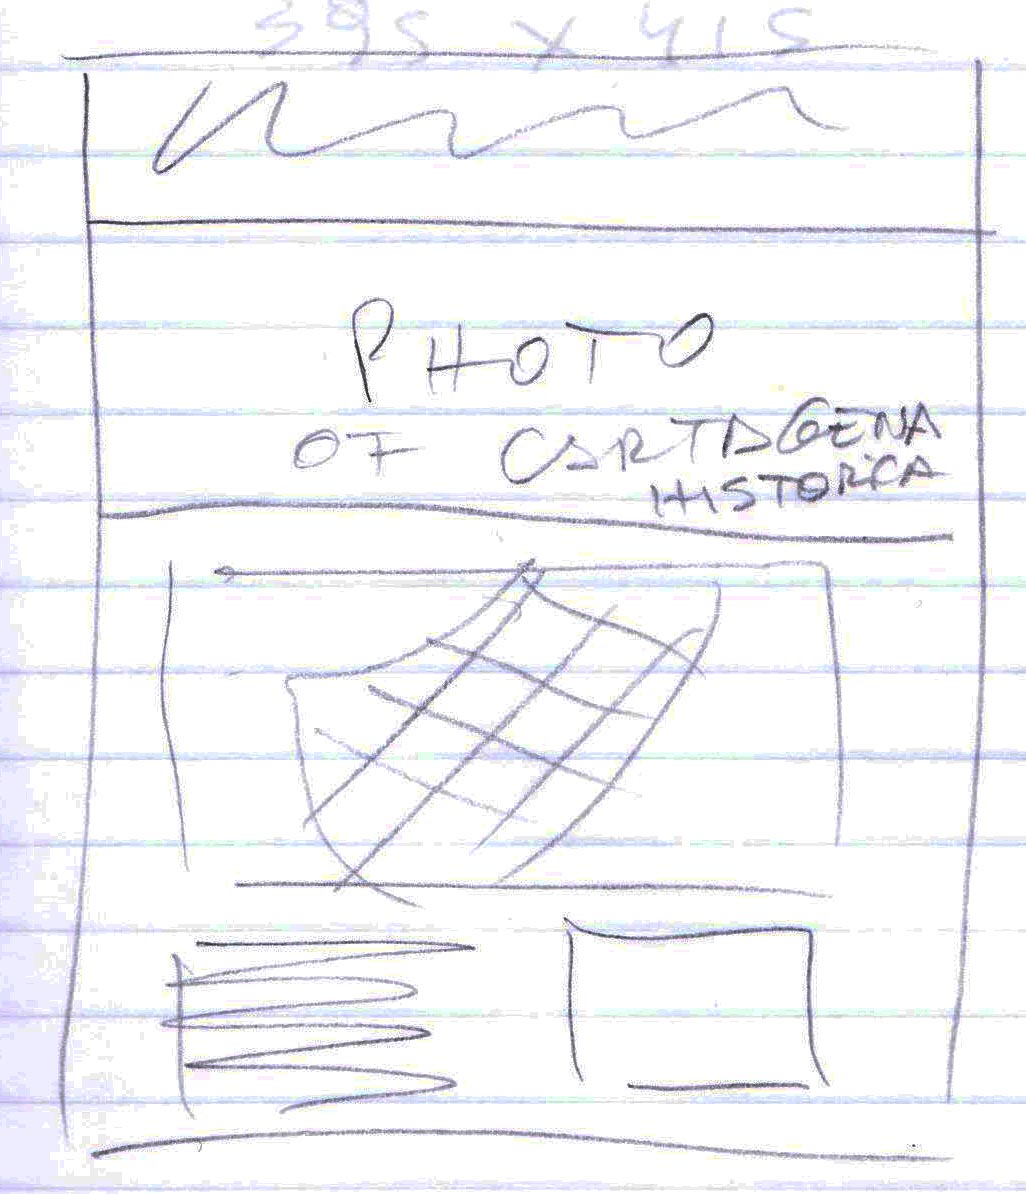 395 x 415
PHOTO
OF CARTAGENA
HISTORICA